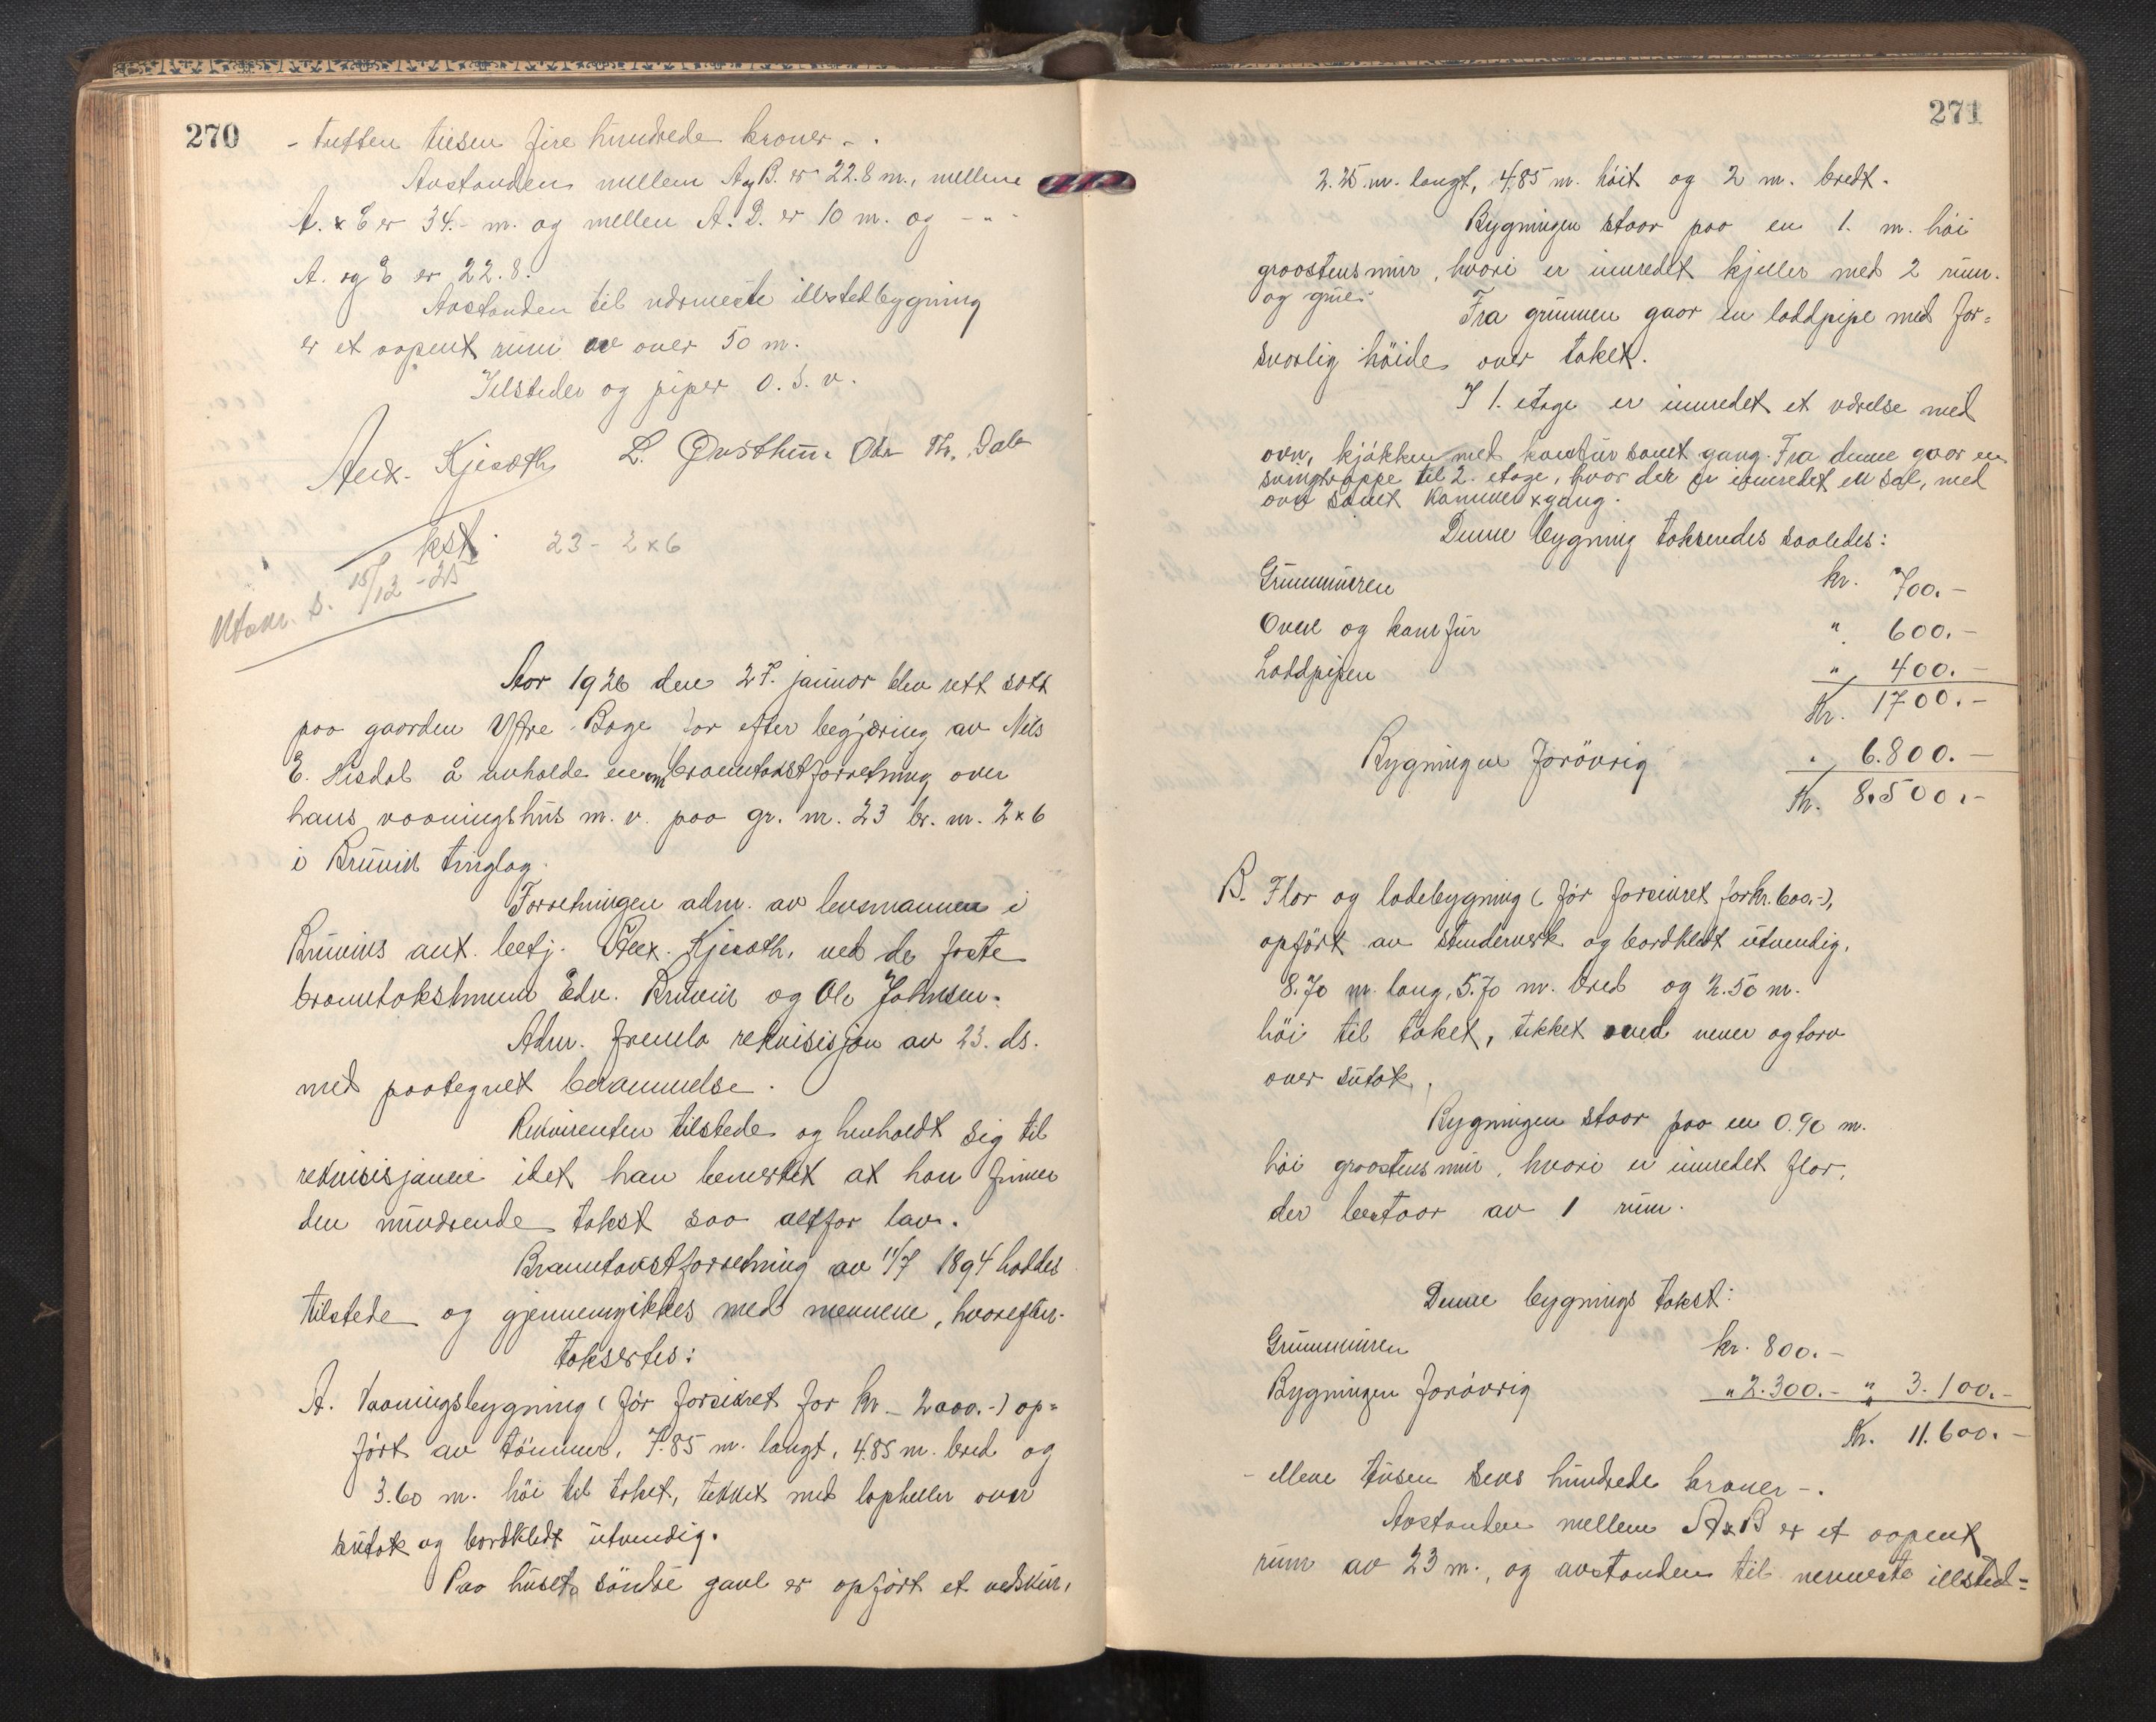 270
- tretten tusen fire hundrede kroner -.
Avstanden mellem A og B. er 22.8 m., mellem
A. & C er 34.- m. og mellem A. D. er 10 m. og - " -
A. og E er 22.8.
Avstanden til nærmeste illstedbygning
er et aapent rum av over 50 m.
Ildsteder og piper o. s. v.
Alex. Kjesath L. Th. Dale
kst. 23 - 2 x 6
Utskr. s. 15/12 - 25
Aar 1926 den 27. januar blev rett satt
paa gaarden Yttre Boge for efter begjæring av Nils
E. Hisdal å avholde en branntakstforretning over
hans vaaningshus m. v. paa gr. nr. 23 br. nr. 2 x 6
i Bruvik tinglag.
Forretningen adm. av lensmannen i
Bruviks aut. betj. Alex. Kjesath, ved de faste
branntakstmenn Edv. Bruvik og Ole Johnsen.
Adm. fremla rekvisisjon av 23. ds.
med paategnet berammelse.
Rekvirenten tilstede og henholdt sig til
rekvisisjonen idet han bemerket at han finner
den nuværende takst saa altfor lav.
Branntakstforretning av 11/7 1894 haddes
tilstede og gjennemgikkes med mennene, hvorefter
taksertes:
A. Vaaningsbygning (før forsikret for kr. 2000.-) op=
ført av tømmer, 7.85 m. langt, 4.85 m. bred og
3.60 m. høi til taket, tekket med lapheller over
sutak og bordklædt utvendig.
Paa husets søndre gavl er opført et vedskur,
271
2.25 m. langt, 4.85 m. høit og 2 m. bredt.
Bygningen staar paa en 1. m. høi
graastensmur, hvori er innredet kjeller med 2 rum.
og grue. Fra grunnen gaar en laddpipe med for=
svarlig høide over taket.
I 1. etage er innredet et værelse med
ovn, kjøkken med komfur samt gang. Fra denne gaar en
svingtrappe til 2. etage, hvor der er innredet en sal, med
ovn samt kammer x gang.
Denne bygning takseredes saaledes:
Grunnmuren kr. 700.-
Ovne og komfur " 600.-
Laddpipen " 400.-
Kr. 1700.-
Bygningen forøvrig " 6.800.-
Kr. 8.500.-
B. Flor og ladebygning (før forsikret for kr. 600.-),
opført av stenderverk og bordkledt utvendig,
8.70 m. lang, 5.70 m. bred og 2.50 m.
høi til taket, tekket med never og torv
over sutak.
Bygningen staar paa en 0.90 m.
høi graastensmur, hvori er innredet flor,
der bestaar av 1 rum.
Denne bygnings takst:
Grunnmuren kr. 800.-
Bygningen forøvrig " 2.300.- " 3.100.-
Kr. 11.600.-
- elleve tusen seks hundrede kroner -.
Avstanden mellem A x B er et aapent
rum av 23 m., og avstanden til nermeste illsted=